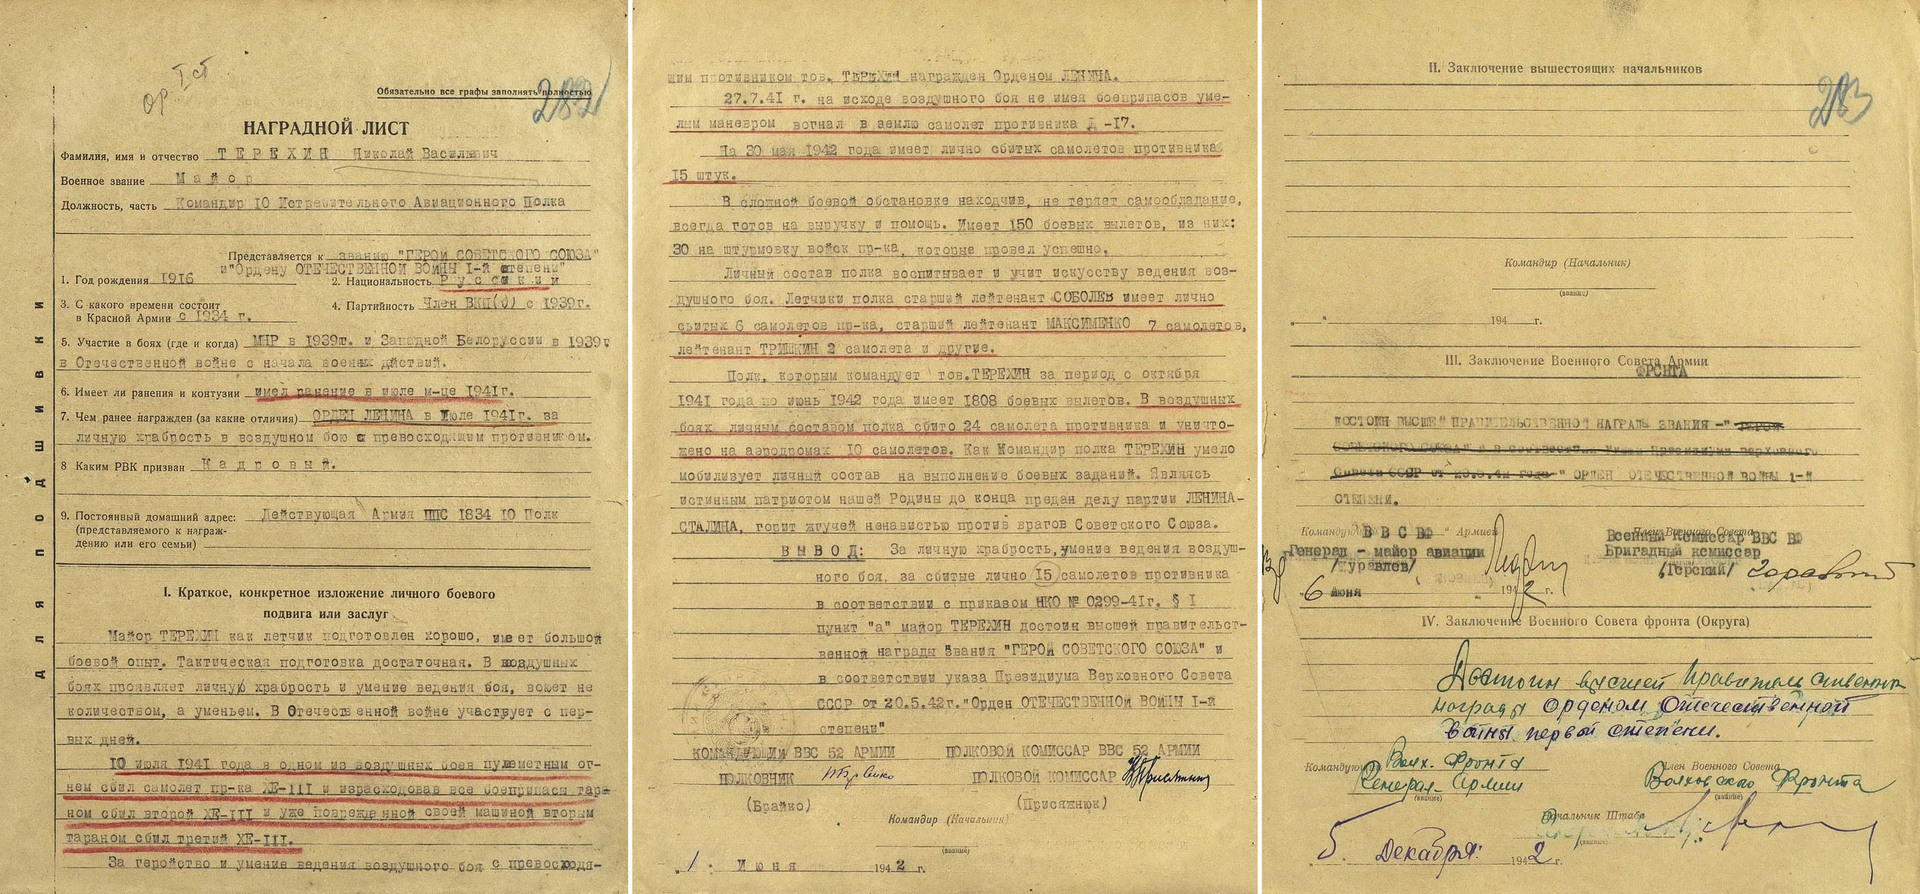 ор. I ст
Обязательно все графы заполнять полностью
282
НАГРАДНОЙ ЛИСТ
Фамилия, имя и отчество ТЕРЕХИН Николай Васильевич
Военное звание Майор
Должность, часть Командир 10 Истребительного Авиационного Полка
Представляется к званию "ГЕРОЙ СОВЕТСКОГО СОЮЗА"
и "Ордену ОТЕЧЕСТВЕННОЙ ВОЙНЫ I-й степени"
1. Год рождения 1916 2. Национальность Русский
3. С какого времени состоит
в Красной Армии с 1934 г. 4. Партийность Член ВКП(б) с 1939г.
5. Участие в боях (где и когда) МНР в 1939г. и Западной Белоруссии в 1939г
в Отечественной войне с начала военных действий.
6. Имеет ли ранения и контузии имел ранение в июле м-це 1941г.
7. Чем ранее награжден (за какие отличия) ОРДЕН ЛЕНИНА в Июле 1941г. за
личную храбрость в воздушном бою с превосходящим противником.
8 Каким РВК призван Кадровый.
9. Постоянный домашний адрес: Действующая Армия ППС 1834 10 Полк
(представляемого к награж-
дению или его семьи)
для подшивки
I. Краткое, конкретное изложение личного боевого
подвига или заслуг
Майор ТЕРЕХИН как летчик подготовлен хорошо, имеет большой
боевой опыт. Тактическая подготовка достаточная. В воздушных
боях проявляет личную храбрость и умение ведения боя, воюет не
количеством, а уменьем. В Отечественной войне участвует с пер-
вых дней.
10 июля 1941 года в одном из воздушных боев пулеметным ог-
нем сбил самолет пр-ка ХЕ-III и израсходовав все боеприпасы тара-
ном сбил второй ХЕ-III и уже поврежденной своей машиной вторым
тараном сбил третий ХЕ-III.
За геройство и умение ведения воздушного боя с превосходя-
щим противником тов. ТЕРЕХИН награжден Орденом ЛЕНИНА.
27.7.41 г. на исходе воздушного боя не имея боеприпасов уме-
лым маневром вогнал в землю самолет противника Д -17.
На 30 мая 1942 года имеет лично сбитых самолетов противника
15 штук.
В сложной боевой обстановке находчив, не теряет самообладание,
всегда готов на выручку и помощь. Имеет 150 боевых вылетов, из них:
30 на штурмовку войск пр-ка, которые провел успешно.
Личный состав полка воспитывает и учит искусству ведения воз-
душного боя. Летчики полка старший лейтенант СОБОЛЕВ имеет лично
сбитых 6 самолетов пр-ка, старший лейтенант МАКСИМЕНКО 7 самолетов,
лейтенант ТРИШКИН 2 самолета и другие.
Полк, которым командует тов. ТЕРЕХИН за период с октября
1941 года по июнь 1942 года имеет 1808 боевых вылетов. В воздушных
боях личным составом полка сбито 24 самолета противника и уничто-
жено на аэродромах 10 самолетов. Как Командир полка ТЕРЕХИН умело
мобилизует личный состав на выполнение боевых заданий. Являясь
истинным патриотом нашей Родины до конца предан делу партии ЛЕНИНА-
СТАЛИНА, горит жгучей ненавистью против врагов Советского Союза.
ВЫВОД: За личную храбрость, умение ведения воздуш-
ного боя, за сбитые лично 15 самолетов противника
в соответствии с приказом НКО № 0299-41г. § I
пункт "а" майор ТЕРЕХИН достоин высшей правительст-
венной награды звания "ГЕРОЙ СОВЕТСКОГО СОЮЗА" и
в соответствии указа Президиума Верховного Совета
СССР от 20.5.42г. "Орден ОТЕЧЕСТВЕННОЙ ВОЙНЫ I-й
степени"
КОМАНДУЮЩИЙ ВВС 52 АРМИИ ПОЛКОВОЙ КОМИССАР ВВС 52 АРМИИ
ПОЛКОВНИК ПОЛКОВОЙ КОМИССАР
(Брайко) (Присяжнюк)
Командир (Начальник)
(звание)
1. Июня 1942 г.
II. Заключение вышестоящих начальников
283
Командир (Начальник)
(звание)
"_" 194 г.
III. Заключение Военного Совета Армии
ФРОНТА
ДОСТОИН ВЫСШЕЙ ПРАВИТЕЛЬСТВЕННОЙ НАГРАДЫ ЗВАНИЯ -" ГЕРОЙ
СОВЕТСКОГО СОЮЗА" и в соответствии Указа Президиума Верховного
Совета СССР от 20.5.42 года " ОРДЕН ОТЕЧЕСТВЕННОЙ ВОЙНЫ 1-й
СТЕПЕНИ.
Командующий ВВС ВФ Армией Член Военного Совета
Военный Комиссар ВВС ВФ
Генерал - майор авиации Бригадный комиссар
/Журавлев/ /Терский/
6 Июня 1942 г.
IV. Заключение Военного Совета фронта (Округа)
Достоин высшей Правительственной
награды орденом Отечественной
Войны первой степени.
Командующий Волх. Фронта Член Военного Совета
Генерал-Армии Волховского Фронта
(звание) (звание)
Начальник Штаба
(звание)
5. Декабря 1942 г.